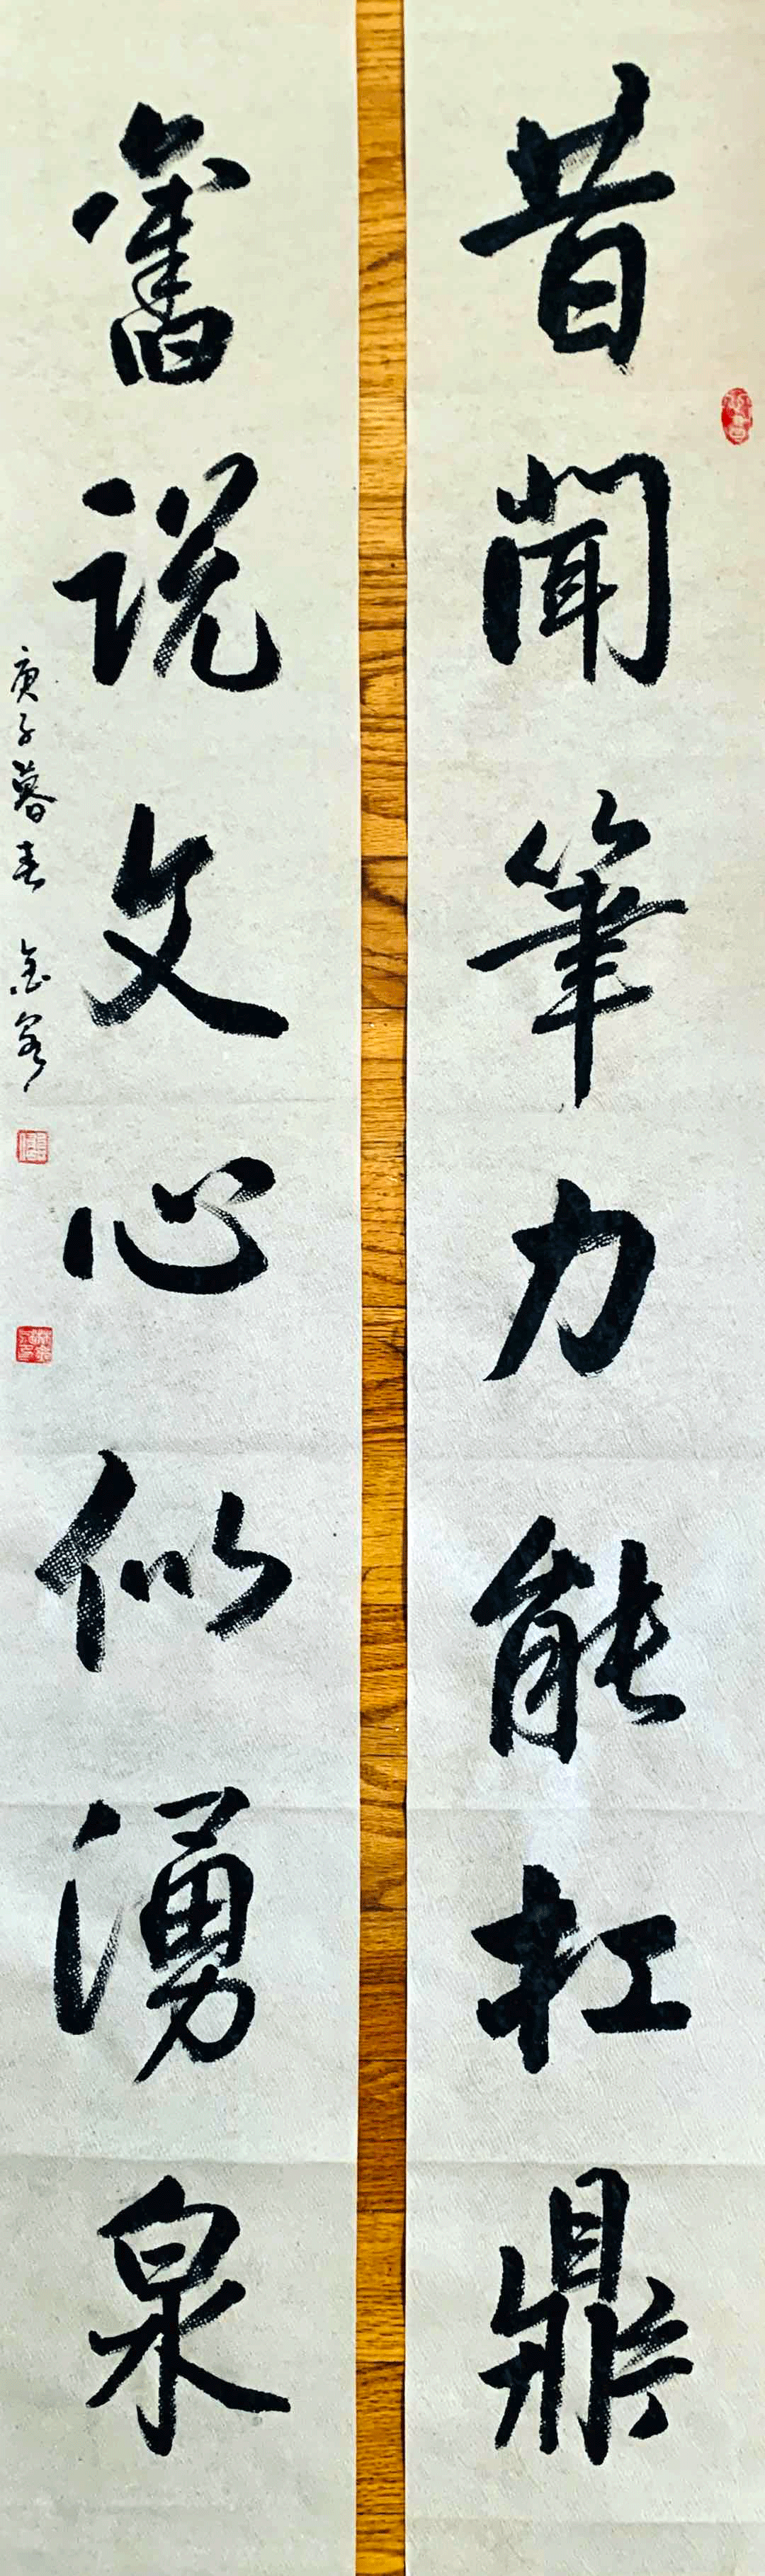 昔聞筆力能扛鼎
舊說文心似湧泉
庚子暮春